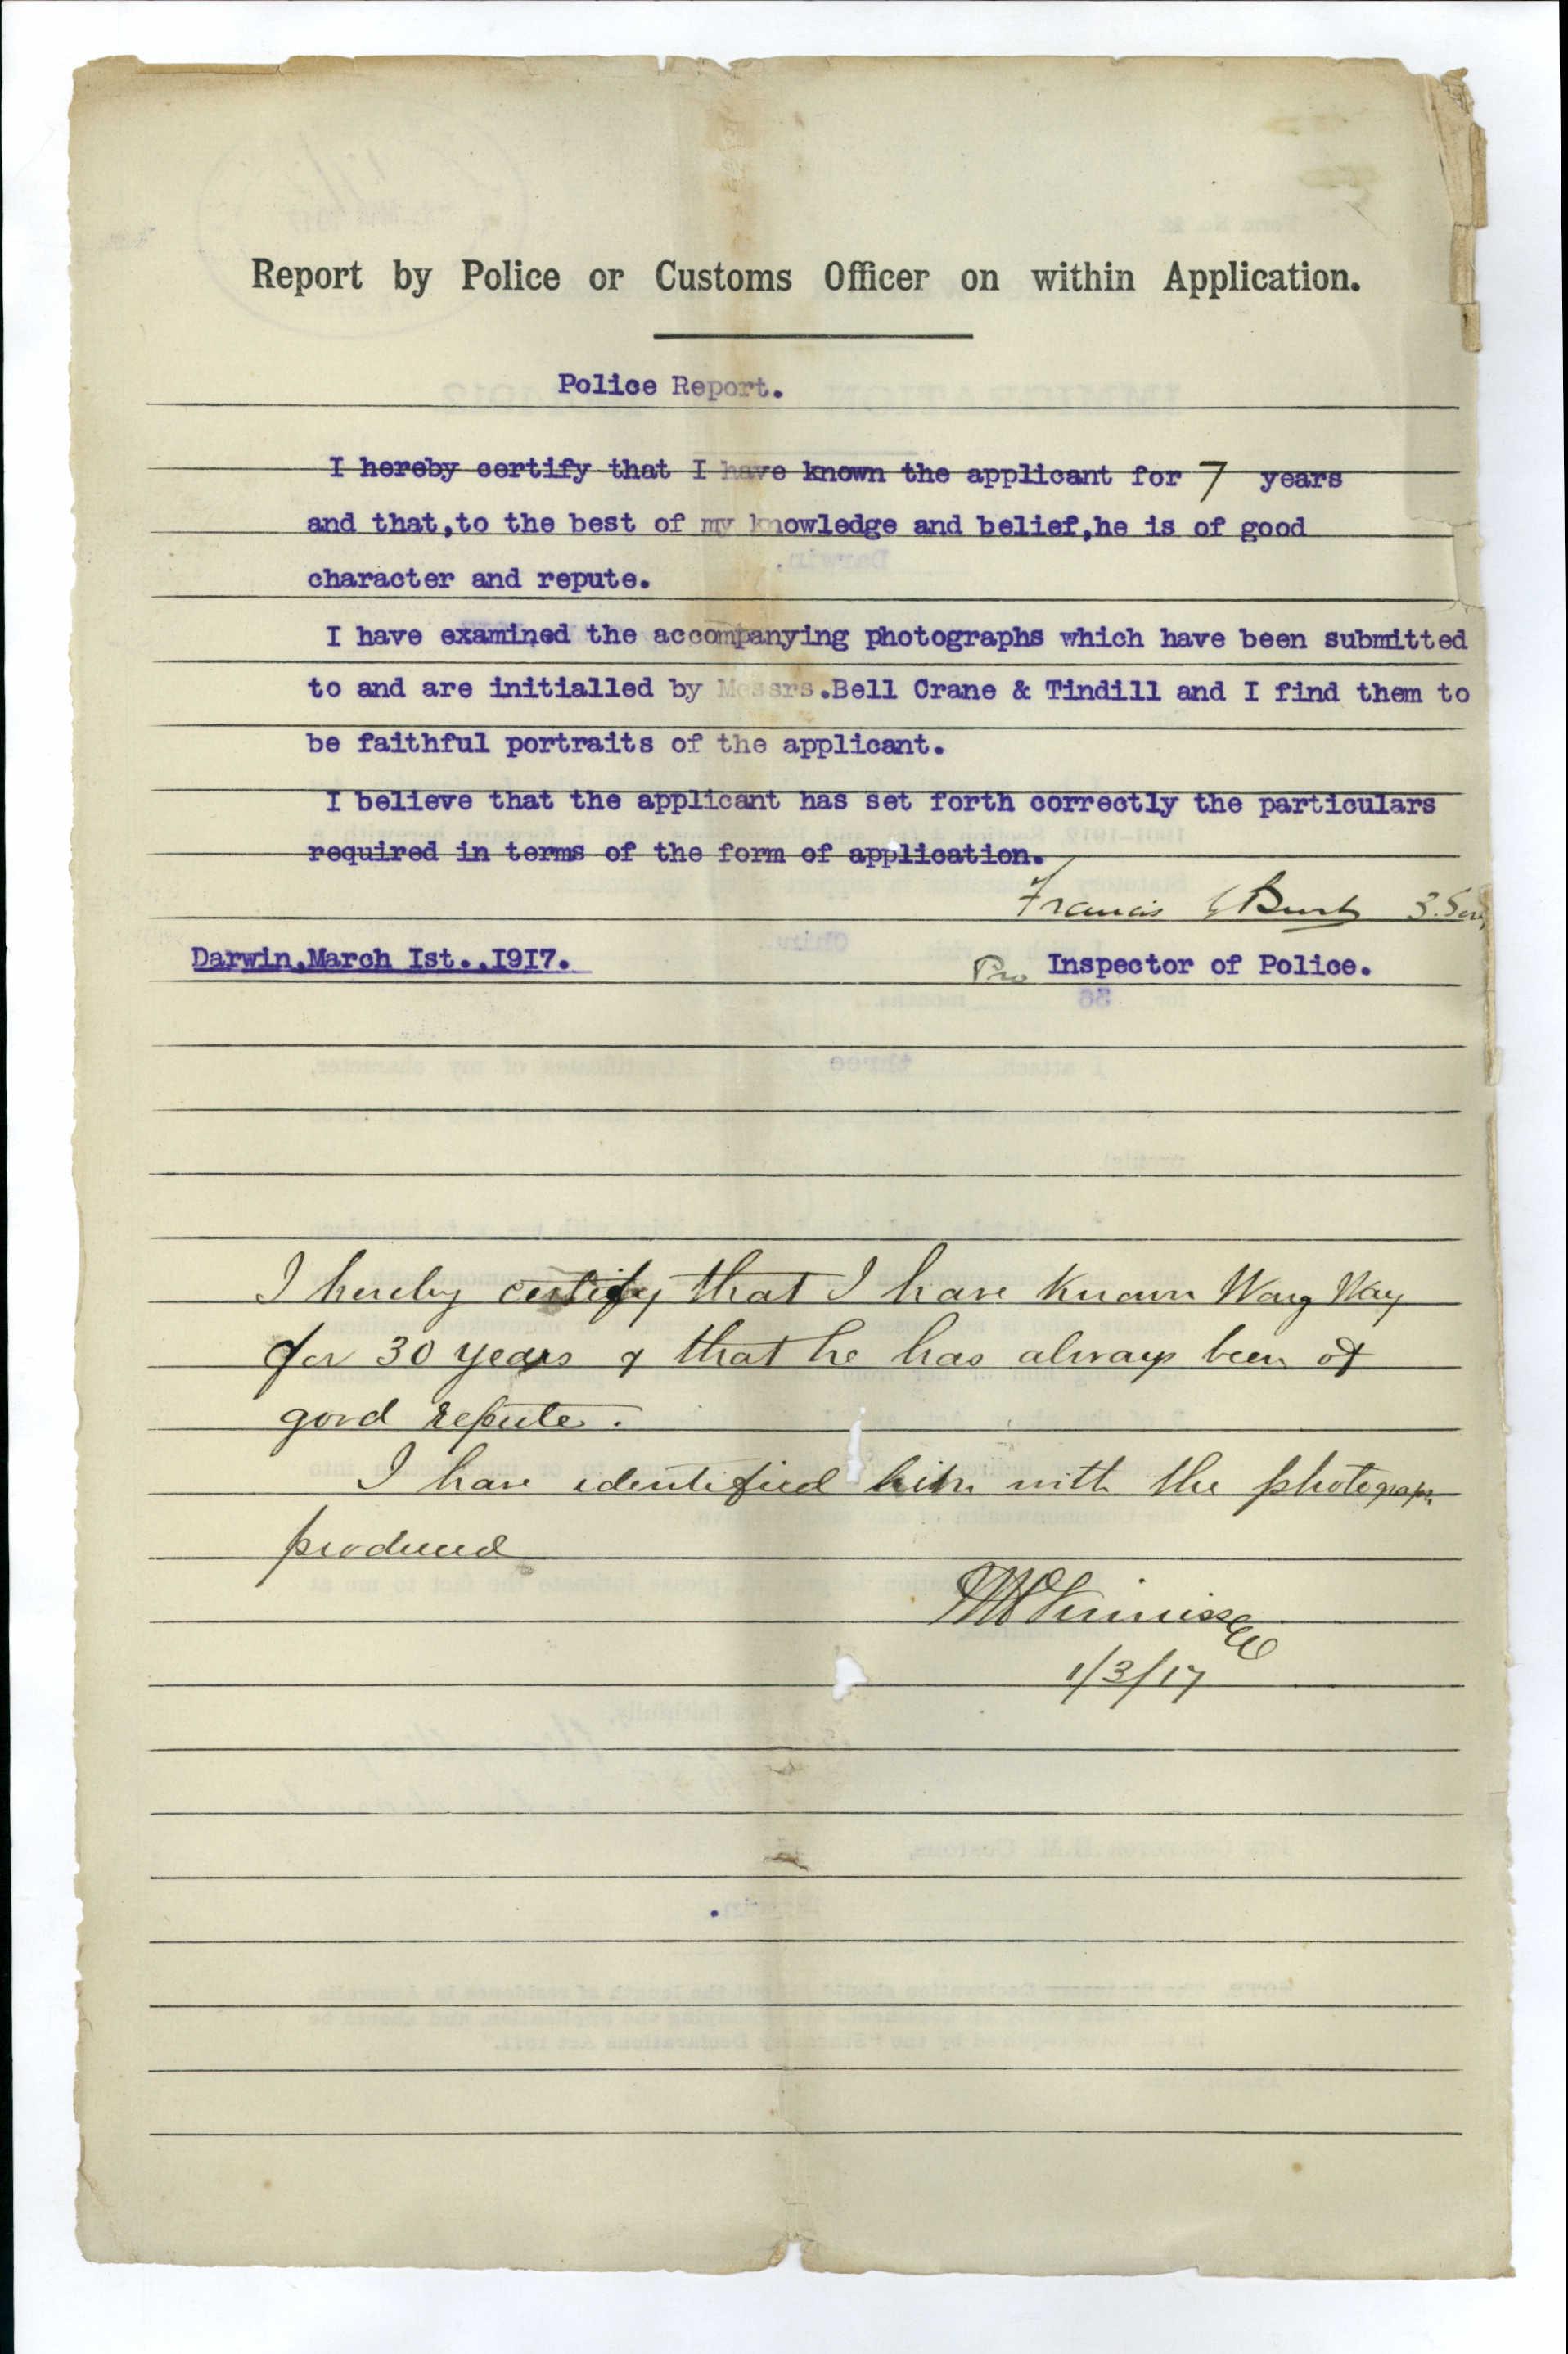 Report by Police or Customs Officer on within Application.
Police Report.
I hereby certify that I have known the applicant for 7 years
and that,to the best of my knowledge and belief,he is of good
character and repute.
I have examined the accompanying photographs which have been submitted
to and are initialled by Messrs.Bell Crane & Tindill and I find them to
be faithful portraits of the applicant.
I believe that the applicant has set forth correctly the particulars
required in terms of the form of application.
Francis
Darwin,March Ist.,I9I7.
Pro Inspector of Police.
I hereby certify that I have known Wong Way
for 30 years & that he has always been of
good repute.
I have identified him with the photograph
produced
1/3/17